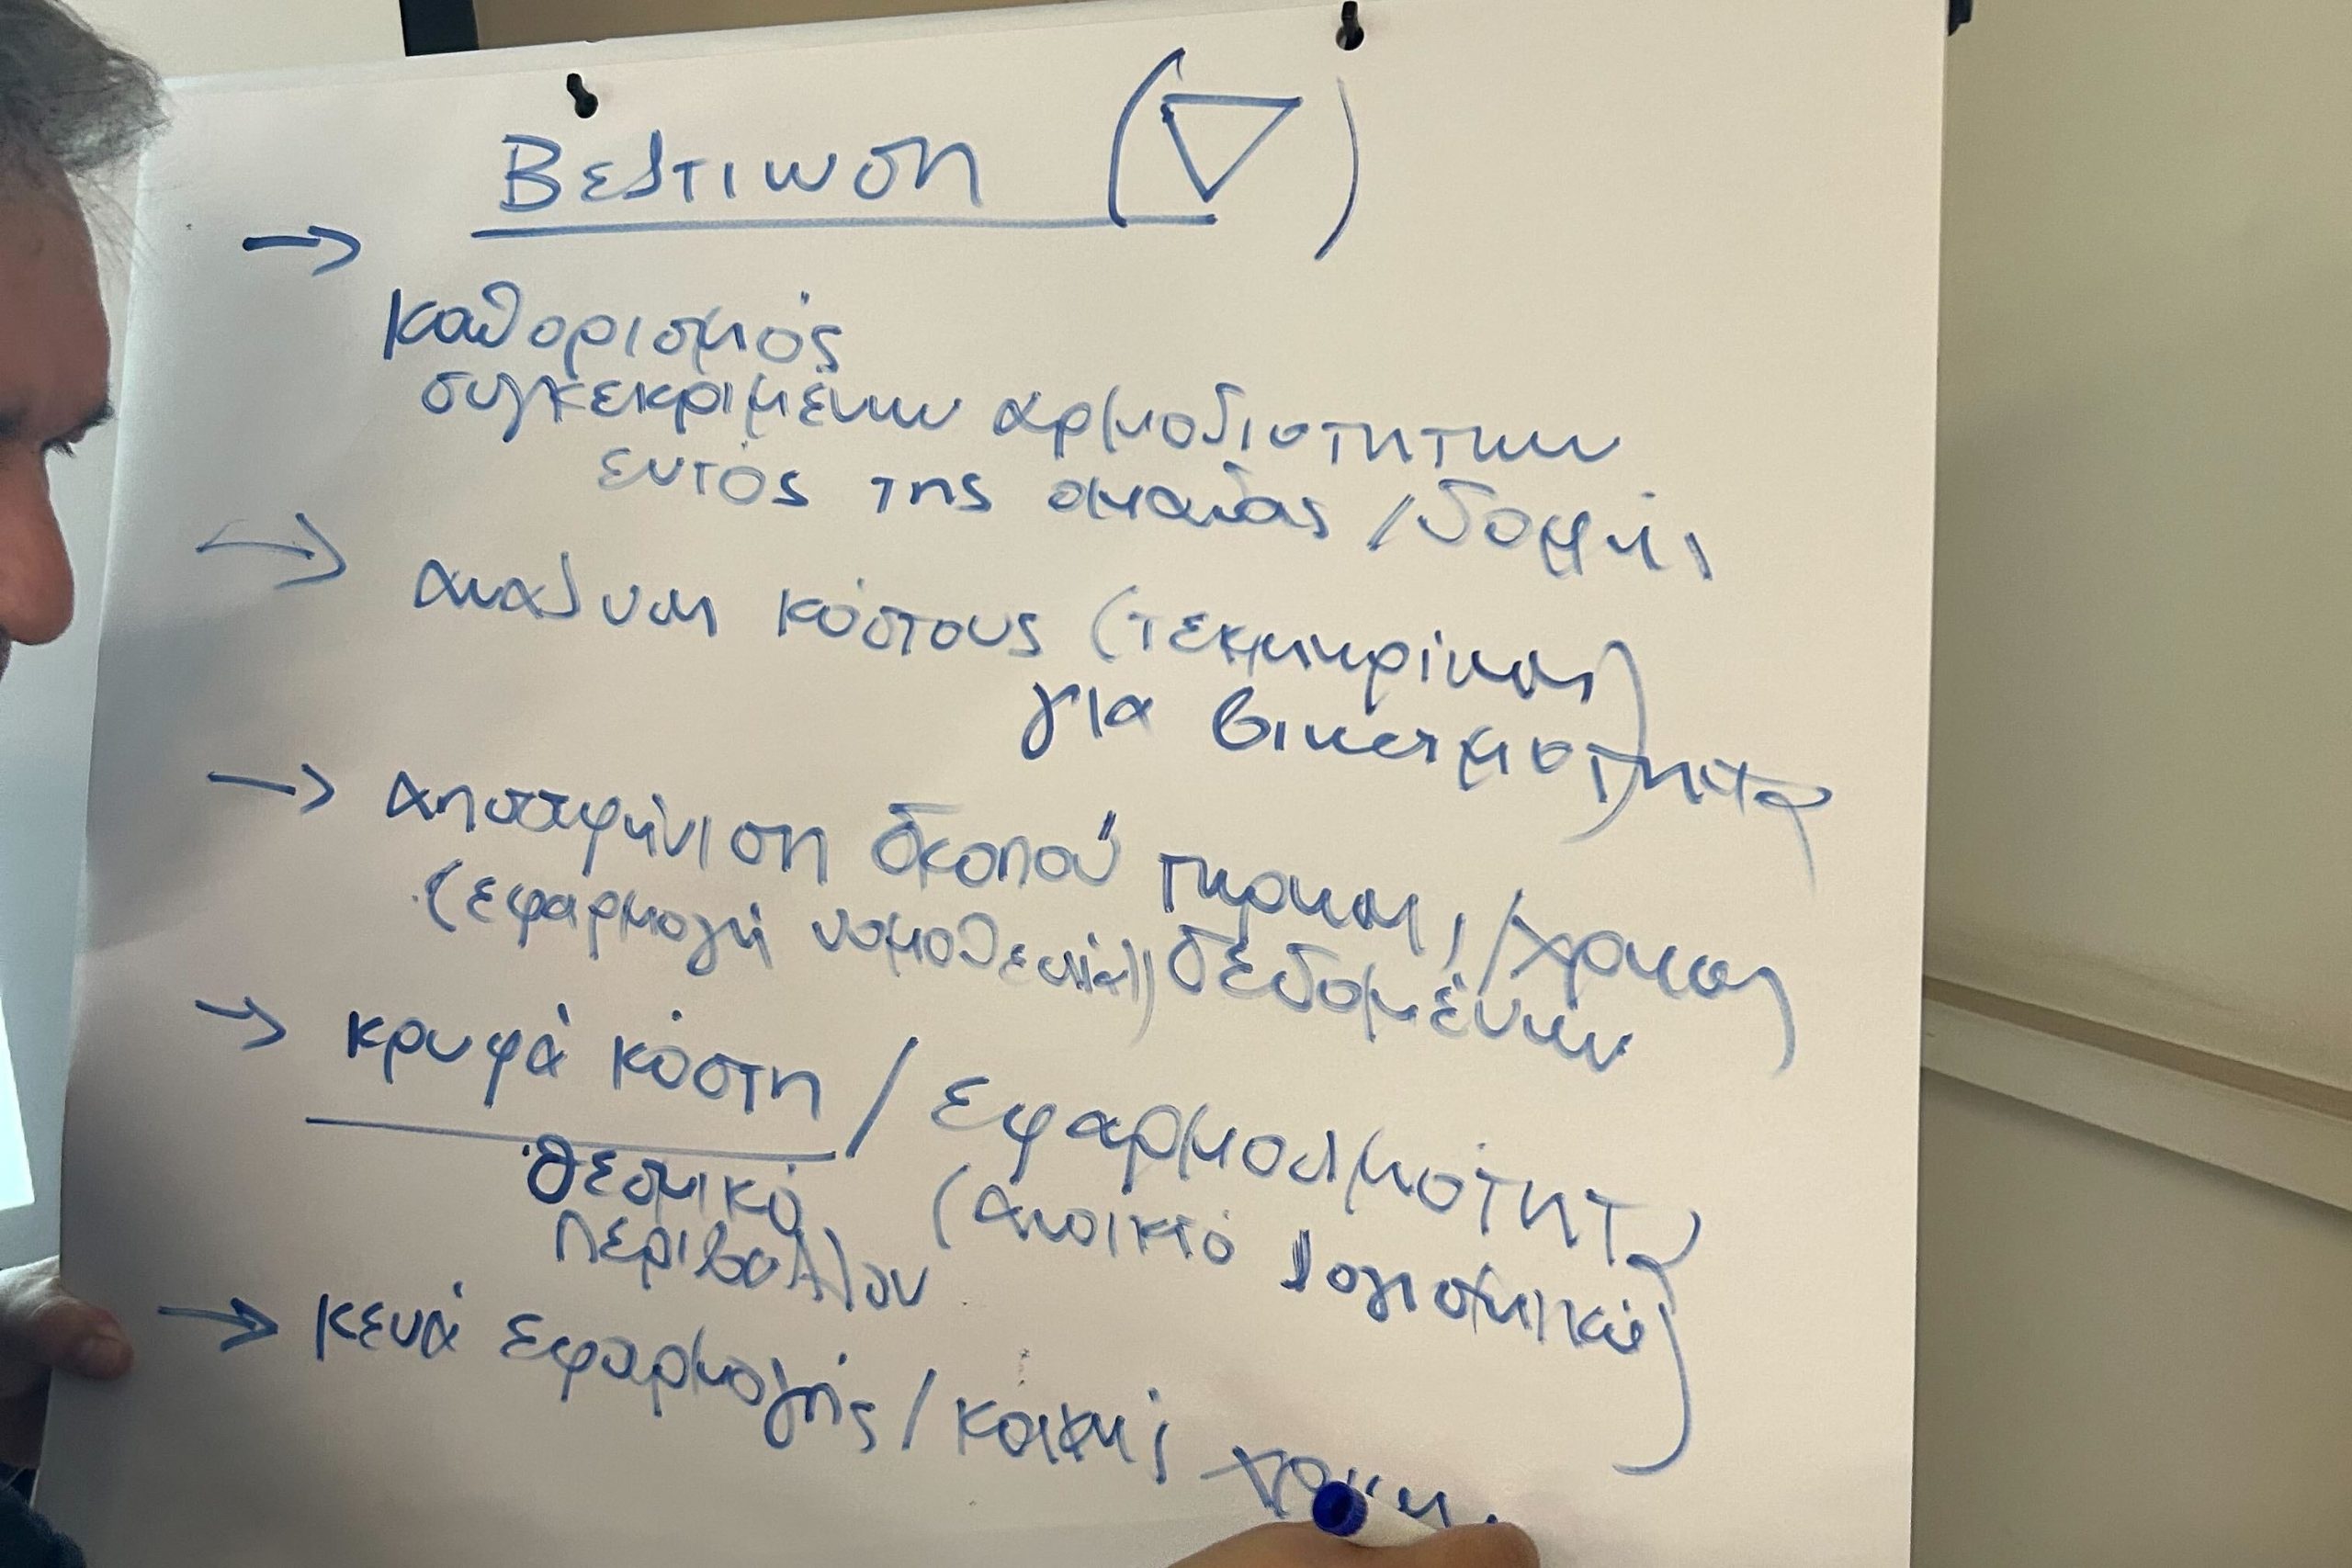 Βελτιωση (▽)
→
καθορισμός
συγκεκριμένων αρμοδιοτητων
εντός της ομαδας / δομής
→ αναλυση κόστους (τεκμηρίωση)
για βιωσιμοτητα
→ αποσαφήνιση σκοπού τηρησης / χρησης
(εφαρμογή νομοθεσίας) δεδομένων
→ κρυφά κόστη / εφαρμοσιμότητα
θεσμικό (ανοικτό λογισμικό)
περιβαλλον
→ κενά εφαρμογής / κοινής